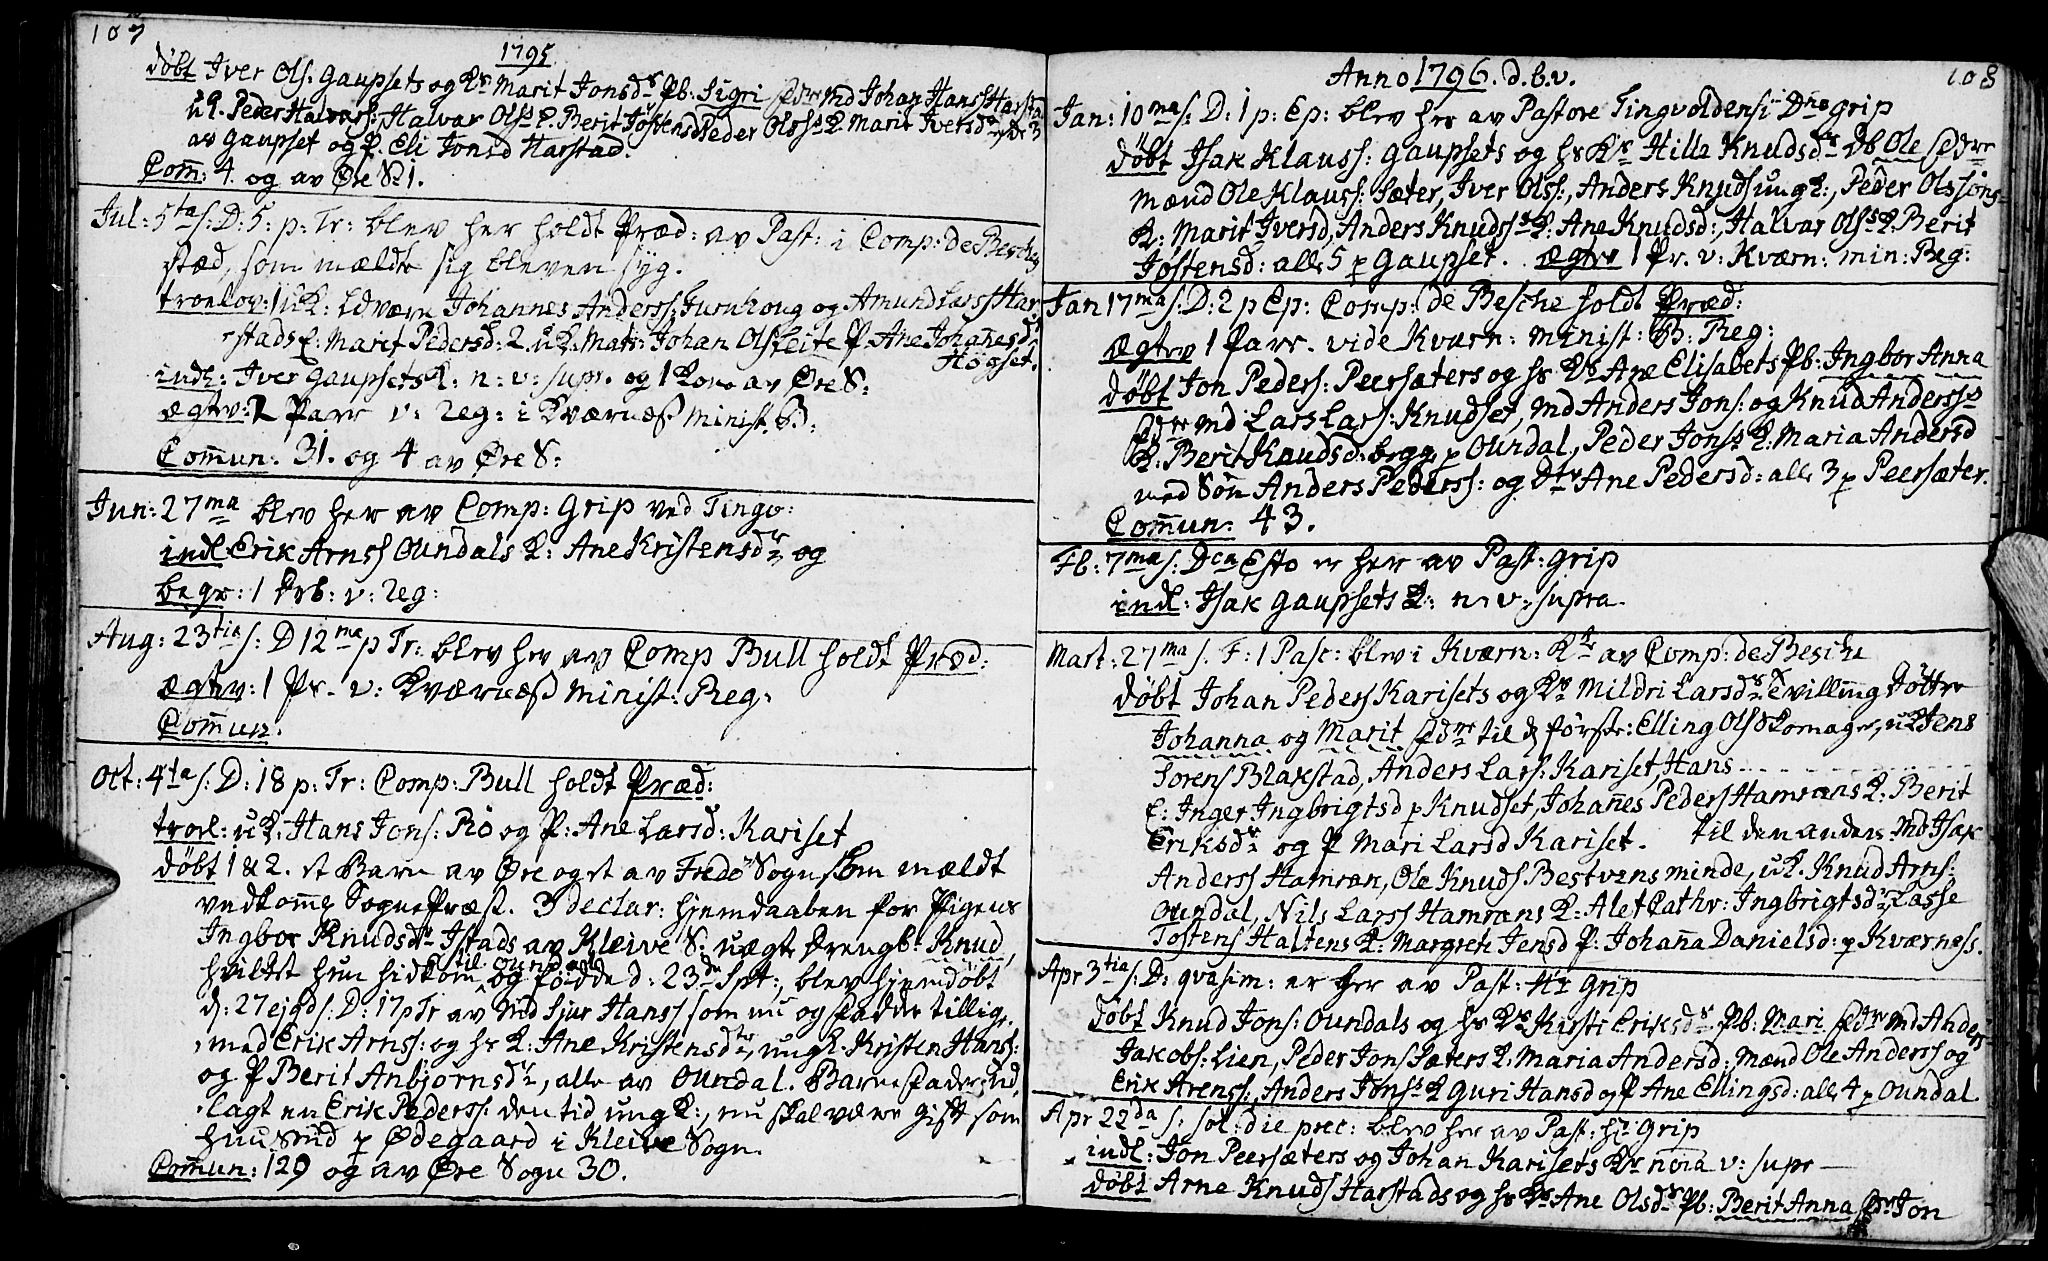 107
1795
döbt Iver Ols: Gaupsets og Kr Marit Jonsdr Pb: Sigri fddre Md Johan Hanss Harstad
uG. Peder Halvorss: Halvar Olss K. Berit Jostensd Peder Olss K. Marit Iversd
av Gaupset og P. Eli Jonsd Harstad.
Com: 4 og av Öre S. 1.
Jul: 5ta s: D: 5: p: Tr: blev her holdt Præd: av Past: i Comp: de Besches
stæd, som mældte sig bleven syg.
troelov: 1 uK: Edværn Johannes Anderss: Furuhoug og Amund Larss Har-
stads E: Marit Pedersd: 2 uK: Matr: Johan Ols Leite P. Ane Johanesdr
Högset.
indl: Iver Gaupsets K: n: v: supr. og 1 Kone av Öre S:
ægtv: 2 Parr v: Reg: i Kværnæss Minist. B:
Commun: 31. og 4 av Öre S:
Jun: 27ma blev her av Comp: Grip ved Tingv:
indl Erik Arnss Oundals K: Ane Kristensdr og
begr: 1 Drb: v: Reg:
Aug: 23tia s: D 12ma p Tr: blev her av Comp Bull holdt Præd:
Ægtv: 1 Pr. v: Kværnæss Minist: Reg:
Commun.
Oct: 4ta s: D: 18 p: Tr: Comp: Bull holdt Præd:
troel: uK: Hans Jons: Rö og P: Ane Larsd: Kariset
döbt 1 & 2. et Barn av Öre og et av Fredö Sogn som mældt
vedkomme SognePræst. 3 declar: hjemdaaben for Pigens
Ingbor Knudsdr Istads av Kleive S: uægte drengb: Knud,
hvilket hun hidkom til Oundal og födde d: 23de Spt:, blev hjemdöbt
d: 27 ejgd s: D: 17 p Tr av Md Sjur Hanss som nu og stadde tillige
med Erik Arnss: og hs K: Ane Kristensdr, ungk. Kristen Hans:
og P Berit Anbjörnsdr, alle av Oundal. Barnefader ud-
lagt en Erik Pederss: den tid ung K:, nu skal være gift som
huusmd p Ödegaard i Kleive Sogn.
Commun: 129 og av Öre Sogn 30.
Anno 1796. d.b.v.
108
Jan: 10ma s: D: 1 p: Ep: blev her av Pastore Tingvoldensi Dno Grip
döbt Isak Klauss: Gaupsets og hs Kr Hille Knudsdr Db Ole fddre
mænd Ole Klauss: Sæter, Iver Olss:, Anders Knuds ungK:, Peder Olssöns
K: Marit Iversd, Anders Knudss K: Ane Knudsd:, Halvar Olss K. Berit
Jöstensd: alle 5 p Gaupset. ægtv 1 Pr. v: Kværn: min: Reg:
Jan 17ma s: D: 2 p Ep: Comp: de Besche holdt Præd:
Ægtv 1 Parr. vide Kværn: minist: B: Reg:
döbt Jon Peders: Peersæters og hs Kr Ane Elisabets Pb: Ingbor Anna
fddre Md Lars Lars: Knudset, Md Anders Jons: og Knud Anderss
K: Berit Knudsd: begge p Oundal, Peder Jonss K: Maria Andersd
med Sön Anders Pederss: og Dtr Ane Pedersd: alle 3 p Peersæter.
Commun: 43.
Fb: 7ma s: Dca Esto er her av Past: Grip
indl: Isak Gaupsets K: n: v: supra.
Mart: 27ma s. F: 1 Pasc: blev i Kværn: Kke av Comp: de Besche
döbt Johan Peders Karisets og Kr Mildri Larsdr Tvilling Döttre
Johanna og Marit fddre til d förste: Elling Ols Skomager, uK Jens
Sorens Blakstad, Anders Lars: Kariset, Hans
E: Inger Ingbrigtsd p Knudset, Johanes Peders Hamrans K: Berit
Eriksdr og P Mari Larsd Kariset. til den anden Md Isak
Anderss Hamran, Ole Knuds Bestvens minde, uK. Knud Arns:
Oundal, Nils Larss Hamrans K: Alet Cathr: Ingbrigtsdr, Lasse
Tostens Haltens K: Margrete Jensd P: Johana Danielsd: p Kværness.
Apr 3tia s: D: qvasim: er her av Past: Hr Grip
döbt Knud Jons: Oundals og hs Kr Kirsti Eriksdr Pb: Mari fddre Md Anders
Jakobs: Lien, Peder Jons Sæters K: Maria Andersd: mænd Ole Anderss og
Erik Arenss:, Anders Jonss K Guri Hansd og P Ane Ellingsd: alle 4 p Oundal.
Apr 22da s: sol: die prec: blev her av Past: Hr: Grip
indl: Jon Peersæters og Johan Karisets Kr nora v: supr
döbt Arne Knuds Harstads og hs Kr Ane Olsdr Pb: Berit Anna fdr Jon